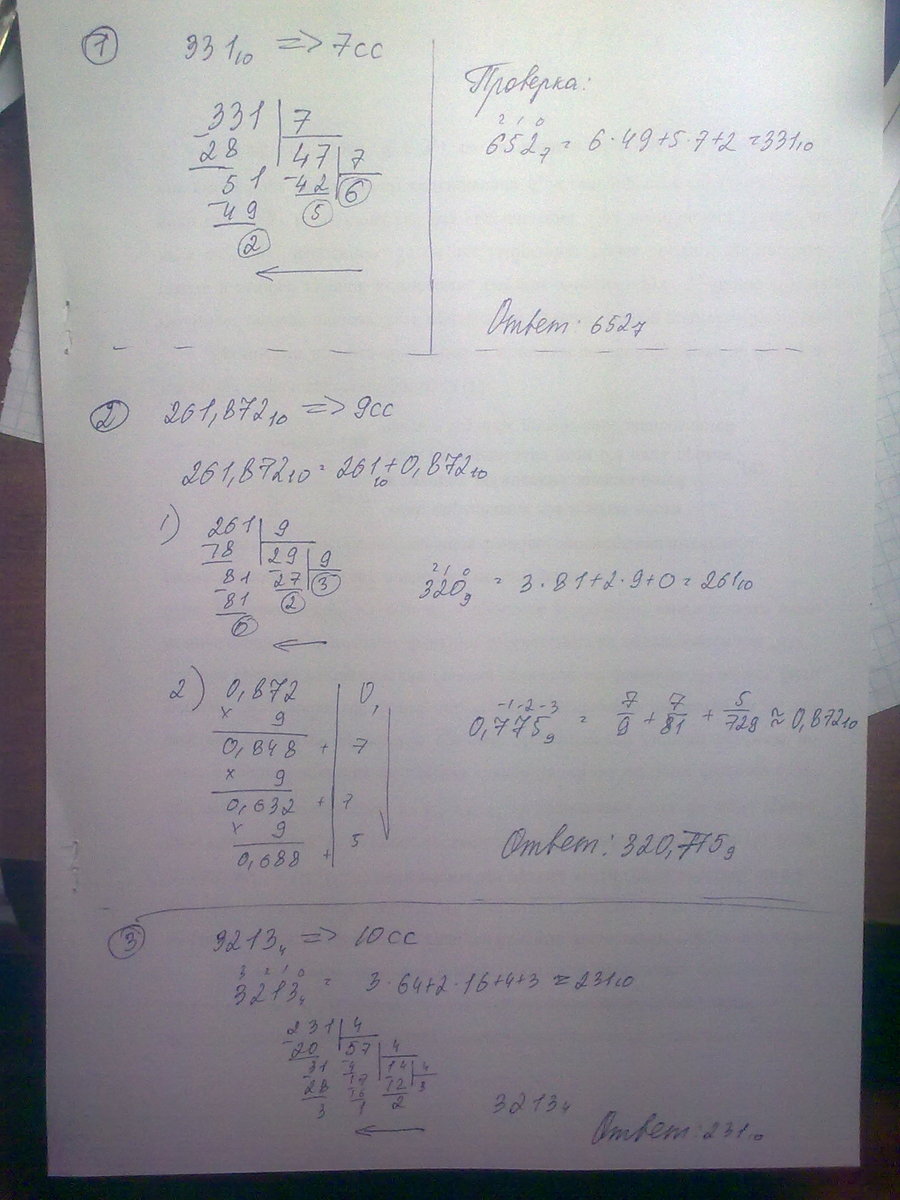 ① 331₁₀ => 7сс
331 | 7
28 47 | 7
51 42 ⑥
49 ⑤
②
Проверка:
2 1 0
652₇ = 6·49+5·7+2 = 331₁₀
Ответ: 652₇
② 261,872₁₀ => 9сс
261,872₁₀ = 261₁₀ + 0,872₁₀
1) 261 | 9
18 29 | 9
81 27 ③
81 ②
⓪
2 1 0
320₉ = 3·81+2·9+0 = 261₁₀
2) 0,872 | 0,
× 9
0,848 + | 7
× 9
0,632 + | 7
× 9
0,688 + | 5
-1 -2 -3
0,775₉ = 7/9 + 7/81 + 5/729 ≈ 0,872₁₀
Ответ: 320,775₉
③ 3213₄ => 10сс
3 2 1 0
3213₄ = 3·64+2·16+4+3 = 231₁₀
231 | 4
20 57 | 4
31 4 14 | 4
28 17 12 3
3 16 2
1
3213₄
Ответ: 231₁₀